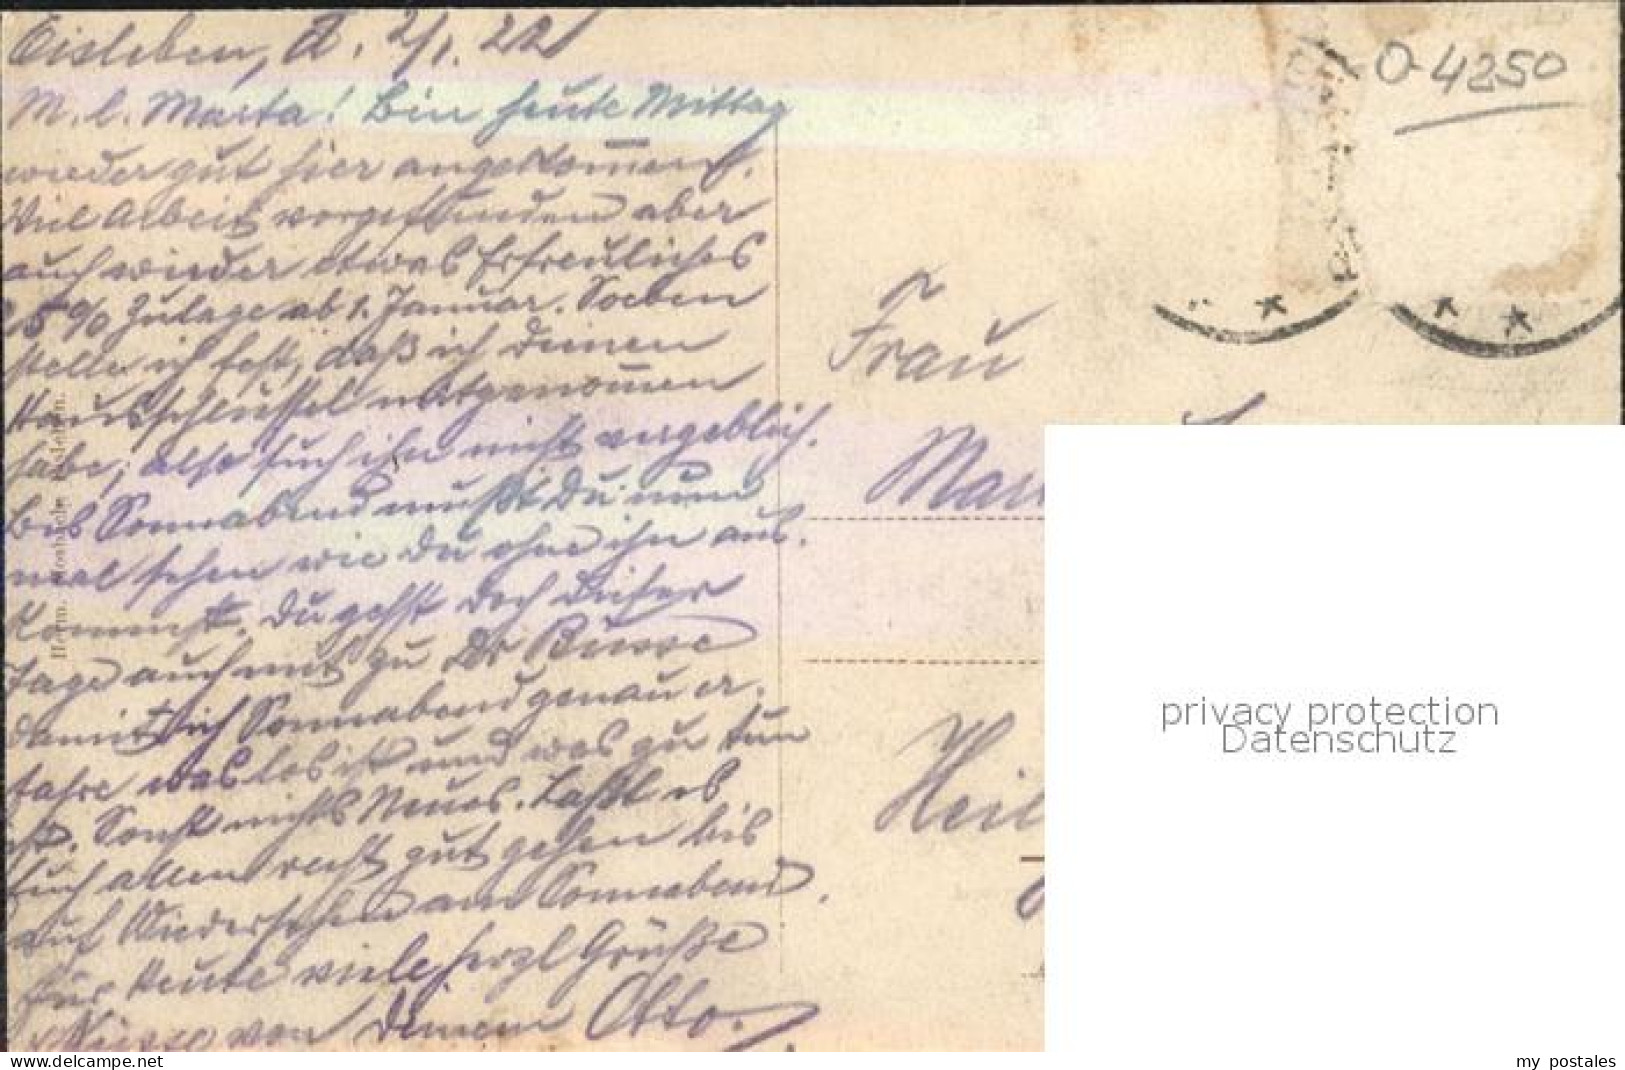 Eisleben, d. 2/1. 22
M. l. Marta! Bin heute Mittag
wieder gut hier angekom̅en.
Viel Arbeit vorgefunden aber
auch wieder etwas Erfreuliches
25% Zulage ab 1. Januar. Soeben
stelle ich fest, daß ich Deinen
Hausschlüssel mitgenom̅en
habe, also such ihn nicht vergeblich.
Bis Sonnabend mußt Du nun
mal sehen wie Du ohne ihn aus-
kommst. Du gehst doch dieser
Tage auch mit zu Dr Busse
damit ich Sonnabend genau er-
fahre was los ist und was zu tun
ist. Sonst nichts Neues. Laßt es
Euch allen recht gut gehen bis
auf Wiedersehen am Sonnabend.
Für Heute viele herzl Grüße
von Deinem Otto.
Herm. Eisleben.
O-4250
Frau
Mar
Heil
privacy protection
Datenschutz
www.delcampe.net
my_postales